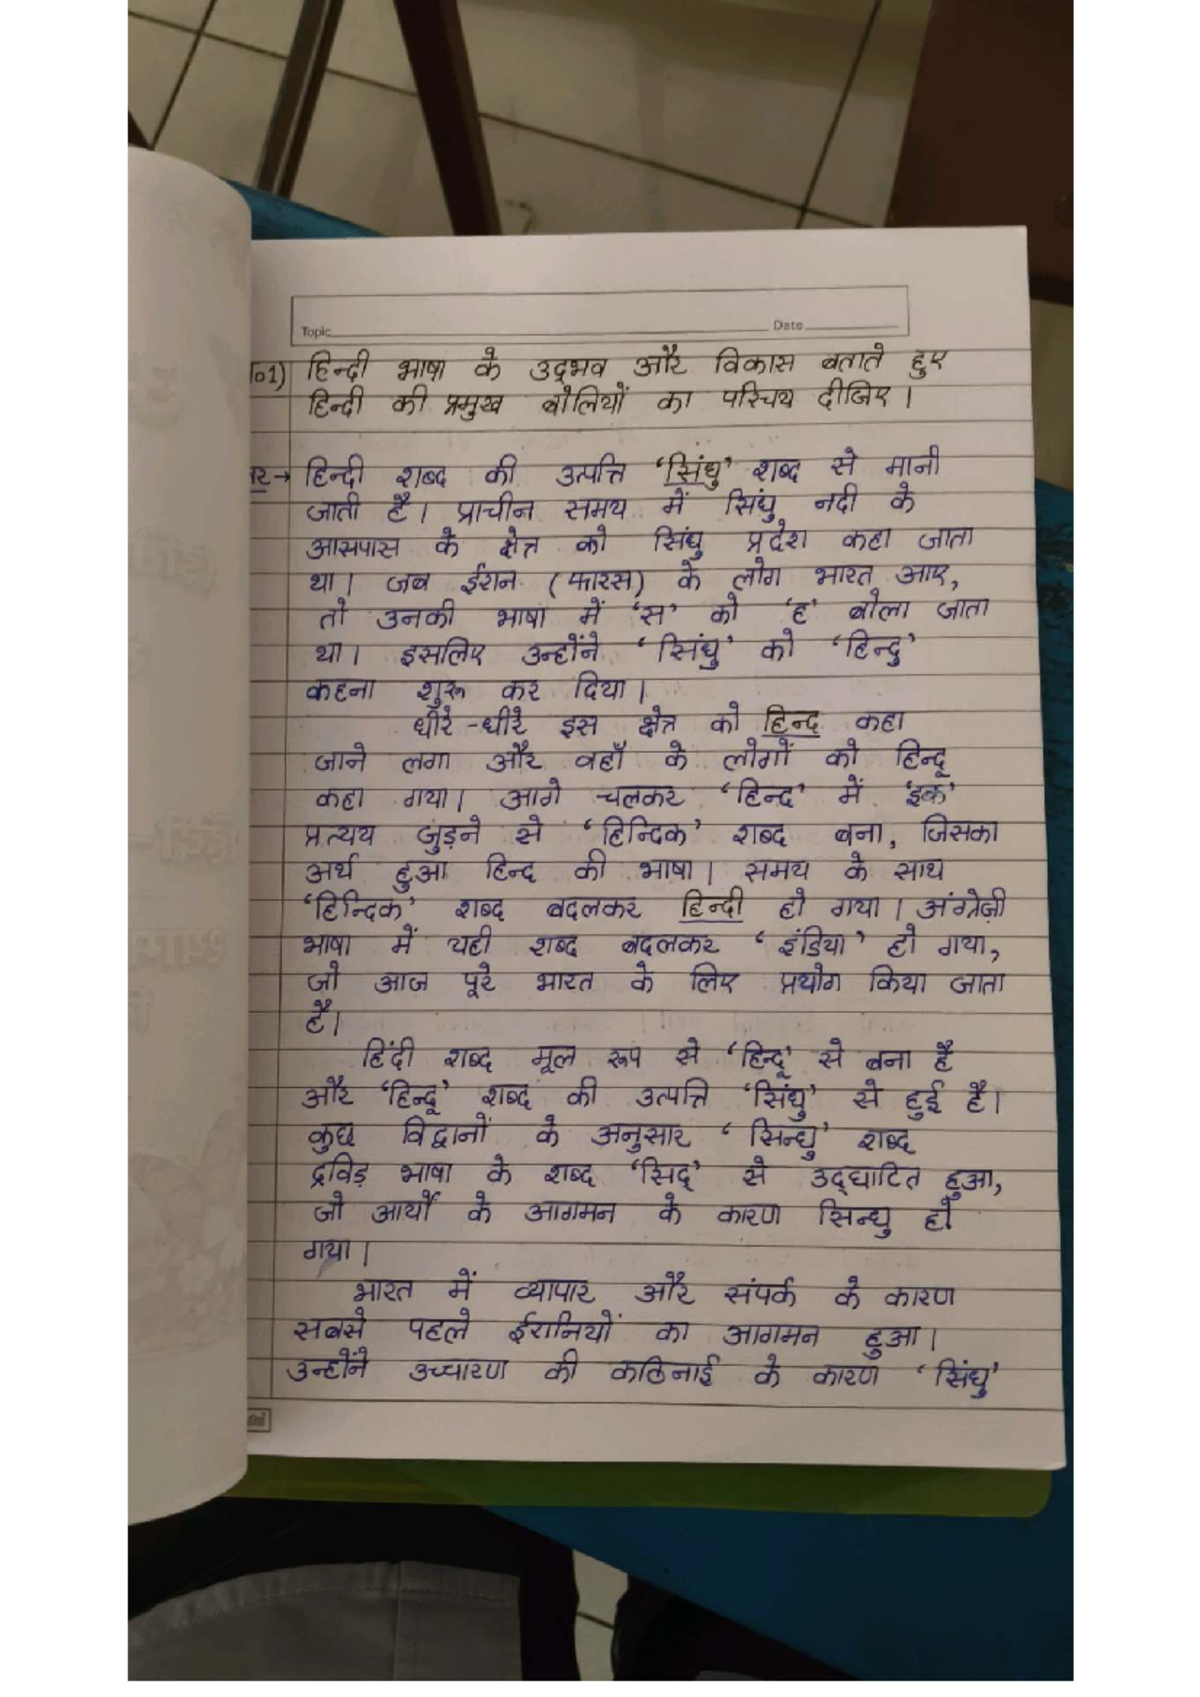 Topic
Date
01) हिन्दी भाषा के उद्भव और विकास बताते हुए
हिन्दी की प्रमुख बोलियों का परिचय दीजिए।
→ हिन्दी शब्द की उत्पत्ति 'सिंधु' शब्द से मानी
जाती है। प्राचीन समय में सिंधु नदी के
आसपास के क्षेत्र को सिंधु प्रदेश कहा जाता
था। जब ईरान (फारस) के लोग भारत आए,
तो उनकी भाषा में 'स' को 'ह' बोला जाता
था। इसलिए उन्होंने 'सिंधु' को 'हिन्दु'
कहना शुरू कर दिया।
धीरे-धीरे इस क्षेत्र को हिन्द कहा
जाने लगा और वहाँ के लोगों को हिन्दू
कहा गया। आगे चलकर 'हिन्द' में 'इक'
प्रत्यय जुड़ने से 'हिन्दिक' शब्द बना, जिसका
अर्थ हुआ हिन्द की भाषा। समय के साथ
'हिन्दिक' शब्द बदलकर हिन्दी हो गया। अंग्रेज़ी
भाषा में यही शब्द बदलकर 'इंडिया' हो गया,
जो आज पूरे भारत के लिए प्रयोग किया जाता
है।
हिंदी शब्द मूल रूप से 'हिन्दू' से बना है
और 'हिन्दू' शब्द की उत्पत्ति 'सिंधु' से हुई है।
कुछ विद्वानों के अनुसार 'सिन्धु' शब्द
द्रविड़ भाषा के शब्द 'सिद्' से उद्घाटित हुआ,
जो आर्यों के आगमन के कारण सिन्धु हो
गया।
भारत में व्यापार और संपर्क के कारण
सबसे पहले ईरानियों का आगमन हुआ।
उन्होंने उच्चारण की कठिनाई के कारण 'सिंधु'